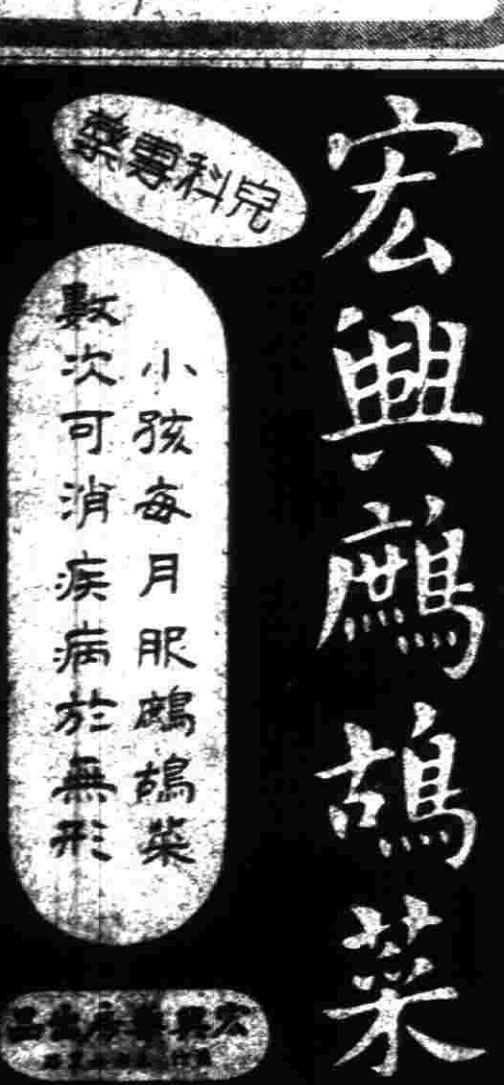 宏興鷓鴣菜
兒科專藥
小孩每月服鷓鴣菜
數次可消疾病於無形
宏興藥房出品